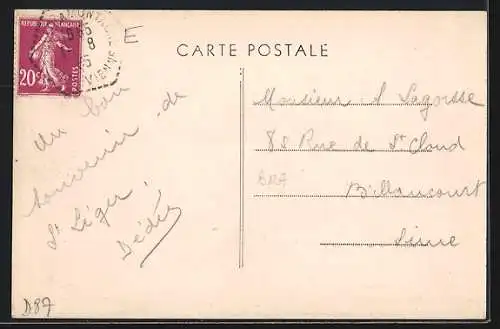 REPUBLIQUE FRANÇAISE
20c
POSTES
LA MONTAGNE
8
VIENNE
E
CARTE POSTALE
un bon
souvenir de
St Léger
Dédée
Monsieur A Lagorsse
88 Rue de St Cloud
Billancourt
Seine
BRA
D87